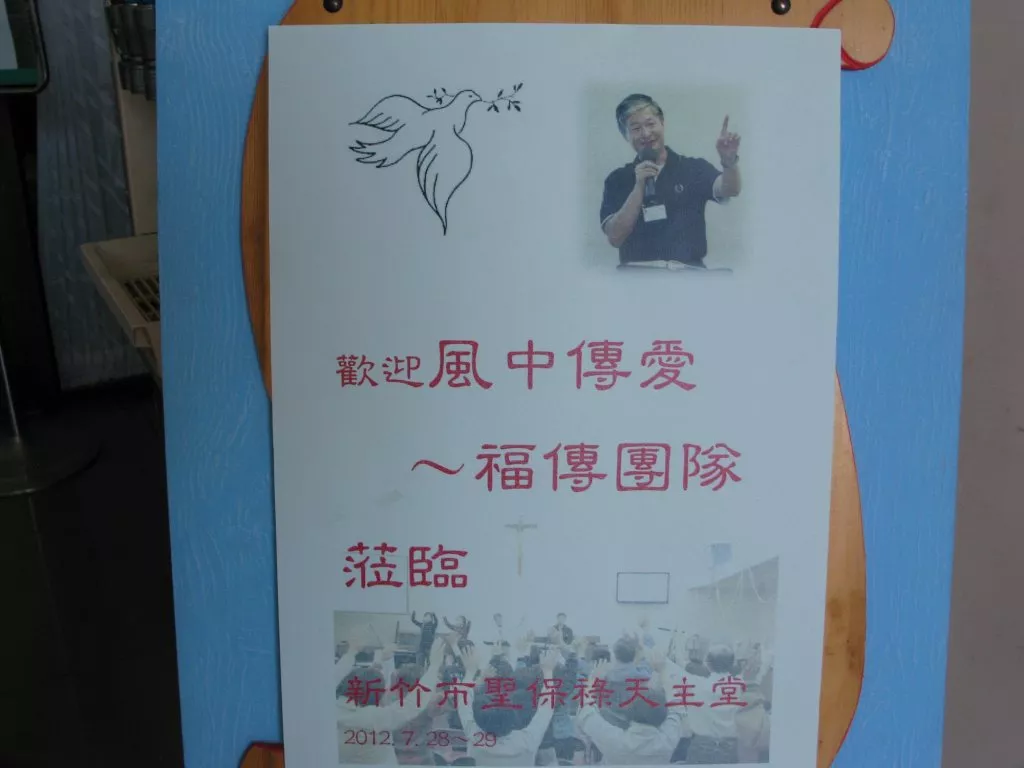 歡迎風中傳愛
～福傳團隊
蒞臨
新竹市聖保祿天主堂
2012. 7. 28～29